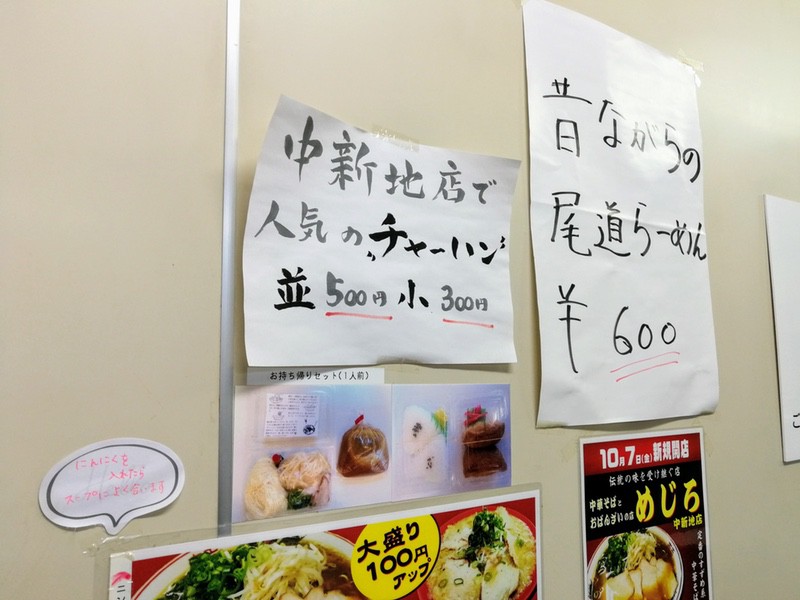 中新地店で
人気の〝チャーハン〟
並500円 小300円
昔ながらの
尾道らーめん
¥600
お持ち帰りセット(1人前)
にんにくを
入れたら
スープによく合います
大盛り
100円
アップ
10月7日(金)新規開店
伝統の味を受け継ぐ店
中華そばと
おばんざいの店
めじろ
中新地店